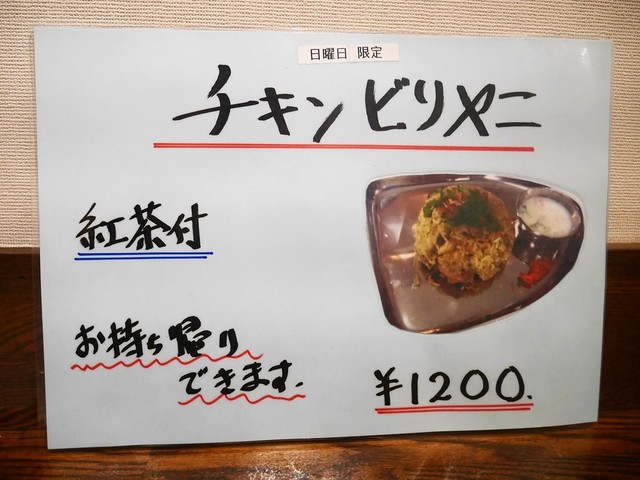 日曜日 限定
チキンビリヤニ
紅茶付
お持ち帰り
できます.
¥1200.